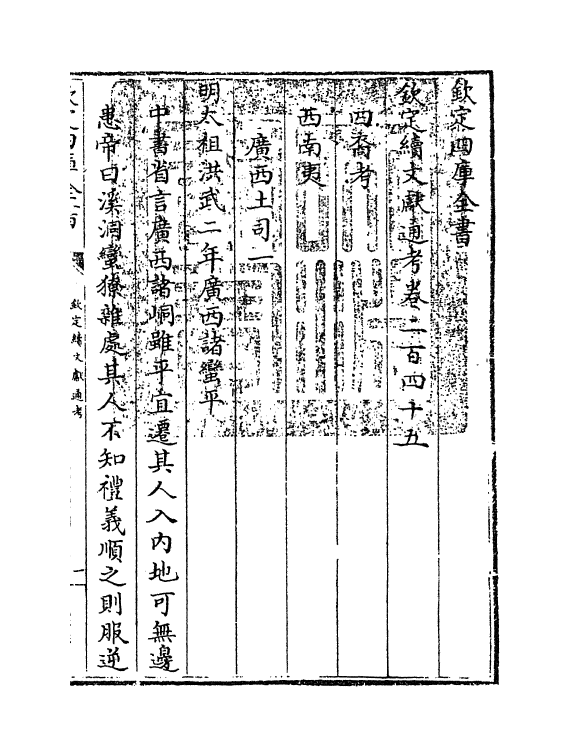 欽定四庫全書
欽定續文獻通考卷二百四十五
四裔考
西南夷
廣西土司一
明太祖洪武二年廣西諸蠻平
中書省言廣西諸峒雖平宜遷其人入内地可無邊
患帝曰溪洞蠻獠雜處其人不知禮義順之則服逆
欽定續文獻通考